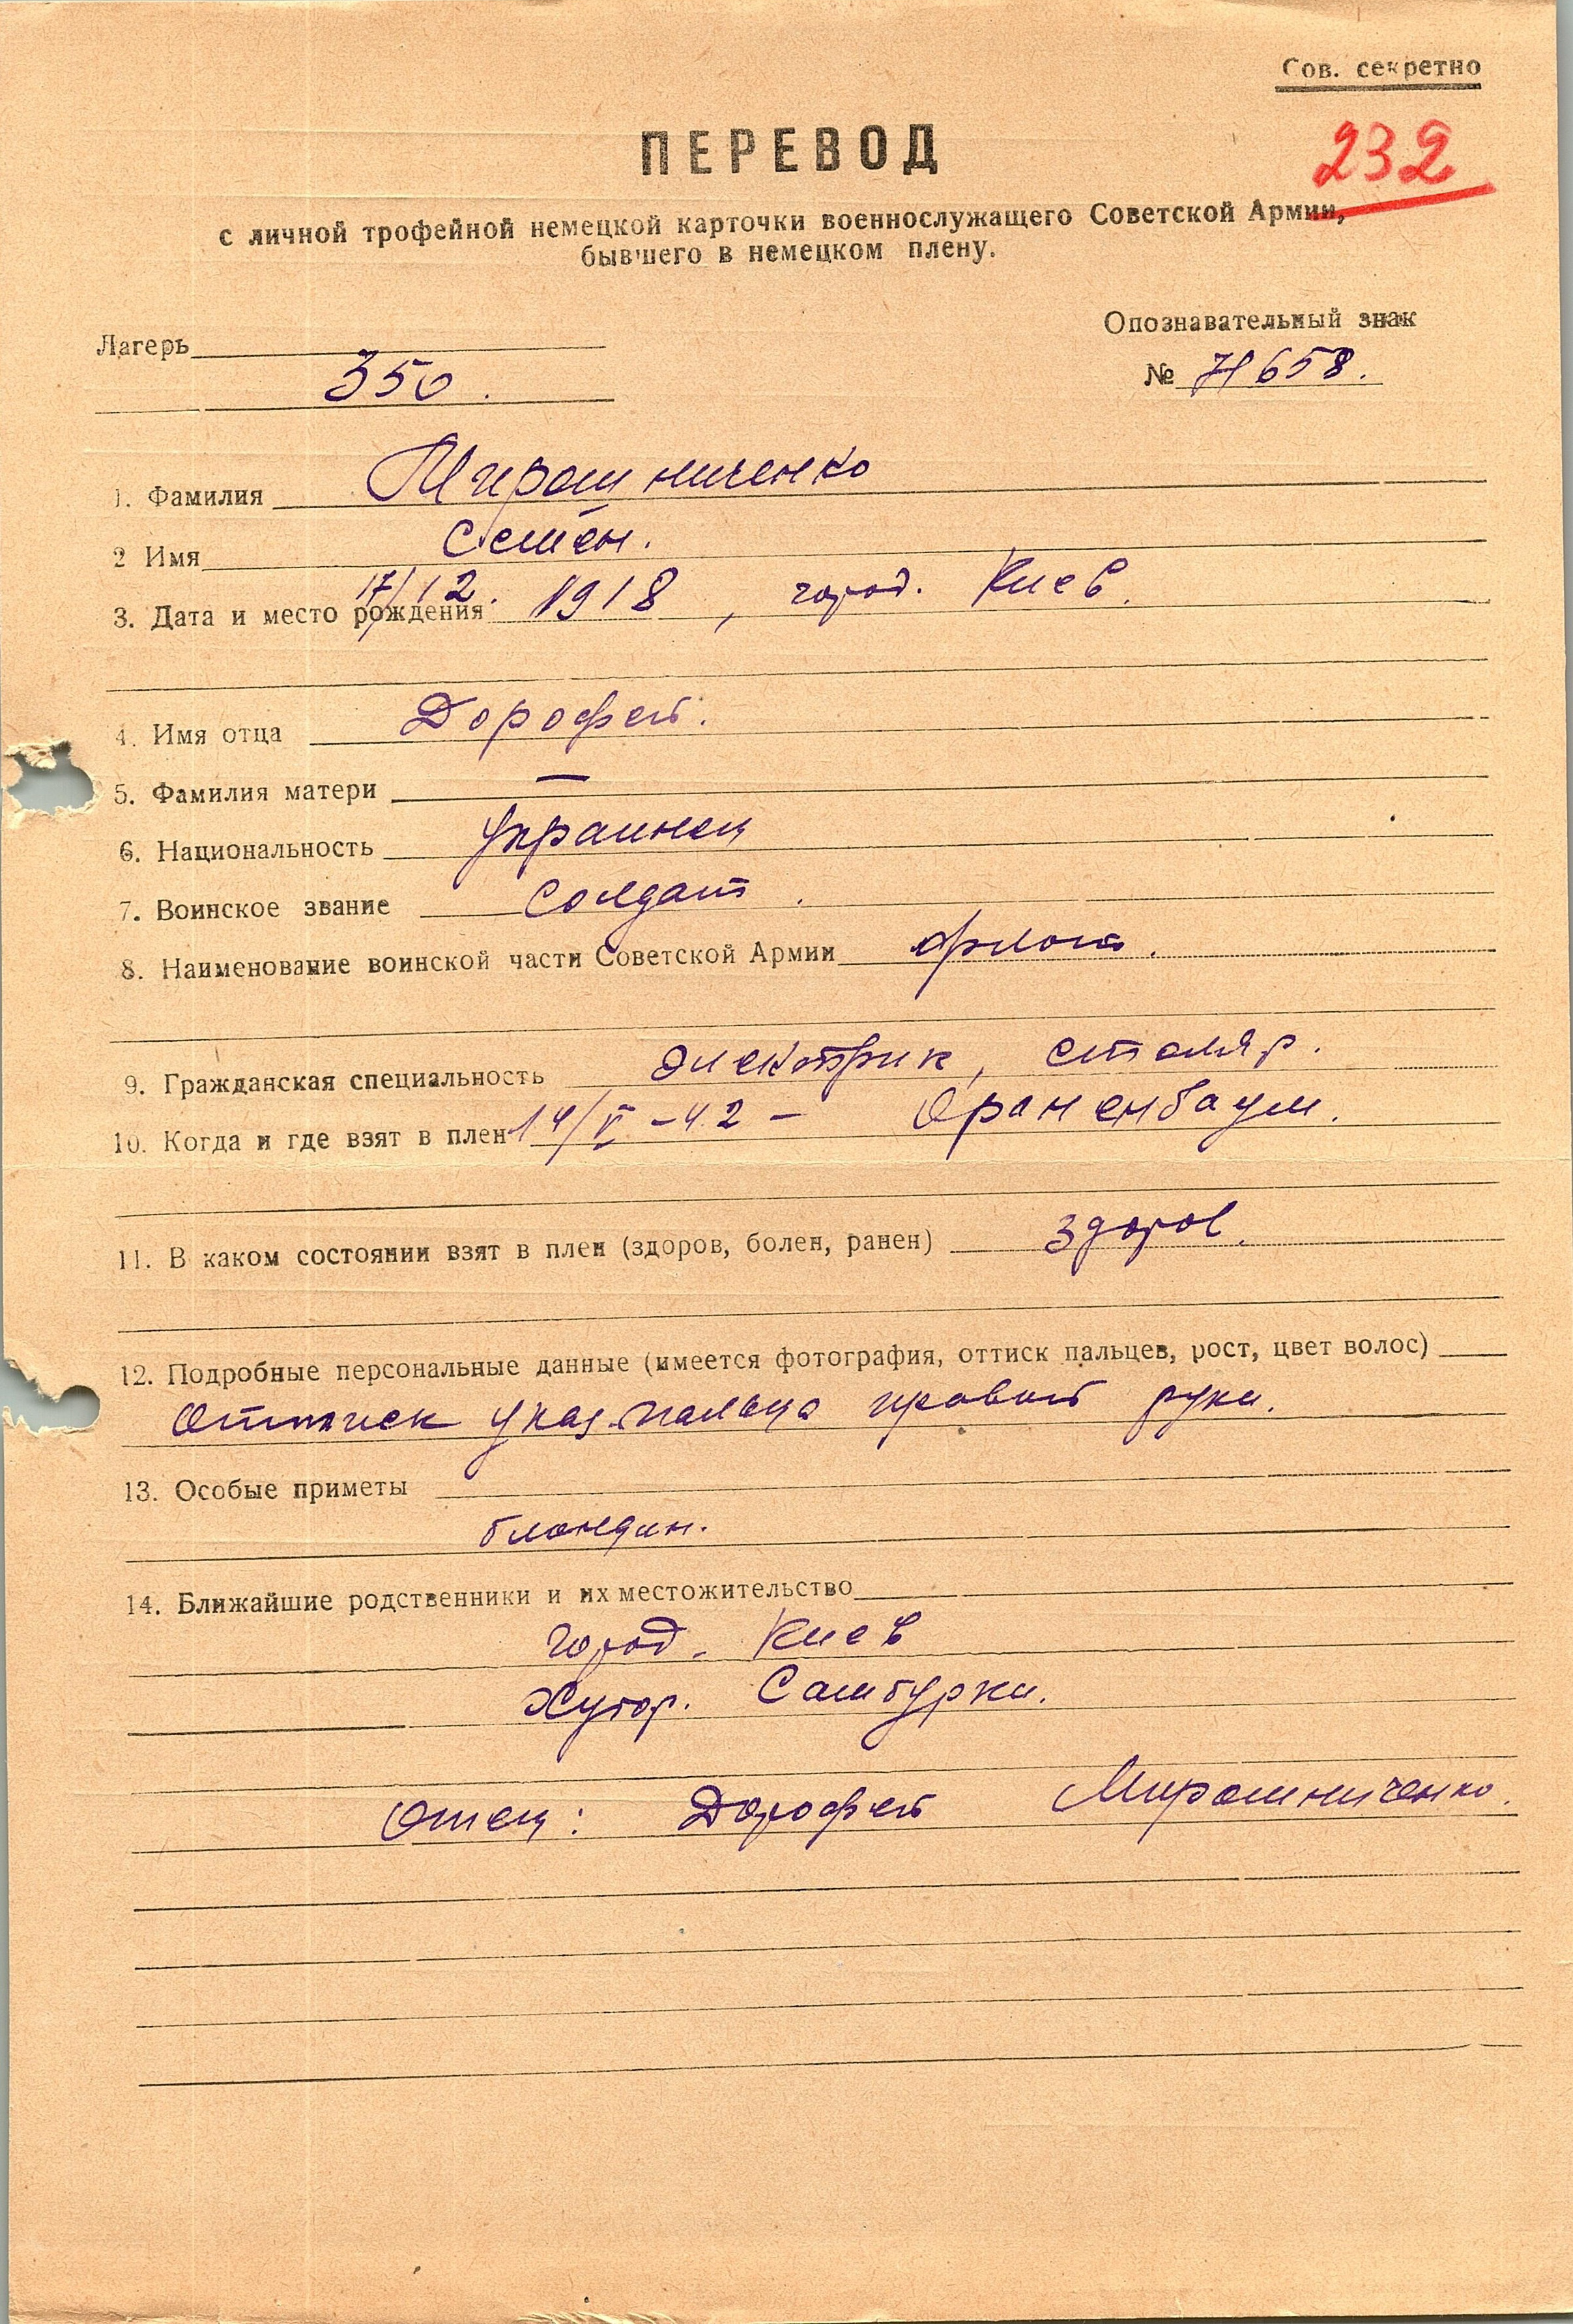 Сов. секретно
232
ПЕРЕВОД
с личной трофейной немецкой карточки военнослужащего Советской Армии,
бывшего в немецком плену.
Лагерь
350.
Опознавательный знак
№ 71658.
1. Фамилия Мирошниченко
2 Имя Семён.
3. Дата и место рождения 17/12. 1918, город. Киев.
4. Имя отца Дорофей.
5. Фамилия матери —
6. Национальность украинец
7. Воинское звание солдат.
8. Наименование воинской части Советской Армии флот.
9. Гражданская специальность электрик, столяр.
10. Когда и где взят в плен 14/V-42 - Ораненбаум.
11. В каком состоянии взят в плен (здоров, болен, ранен) здоров.
12. Подробные персональные данные (имеется фотография, оттиск пальцев, рост, цвет волос)
Оттиск указ. пальца правой руки.
13. Особые приметы
блондин.
14. Ближайшие родственники и их местожительство
город. Киев
Хутор. Самбурки.
Отец: Дорофей Мирошниченко.